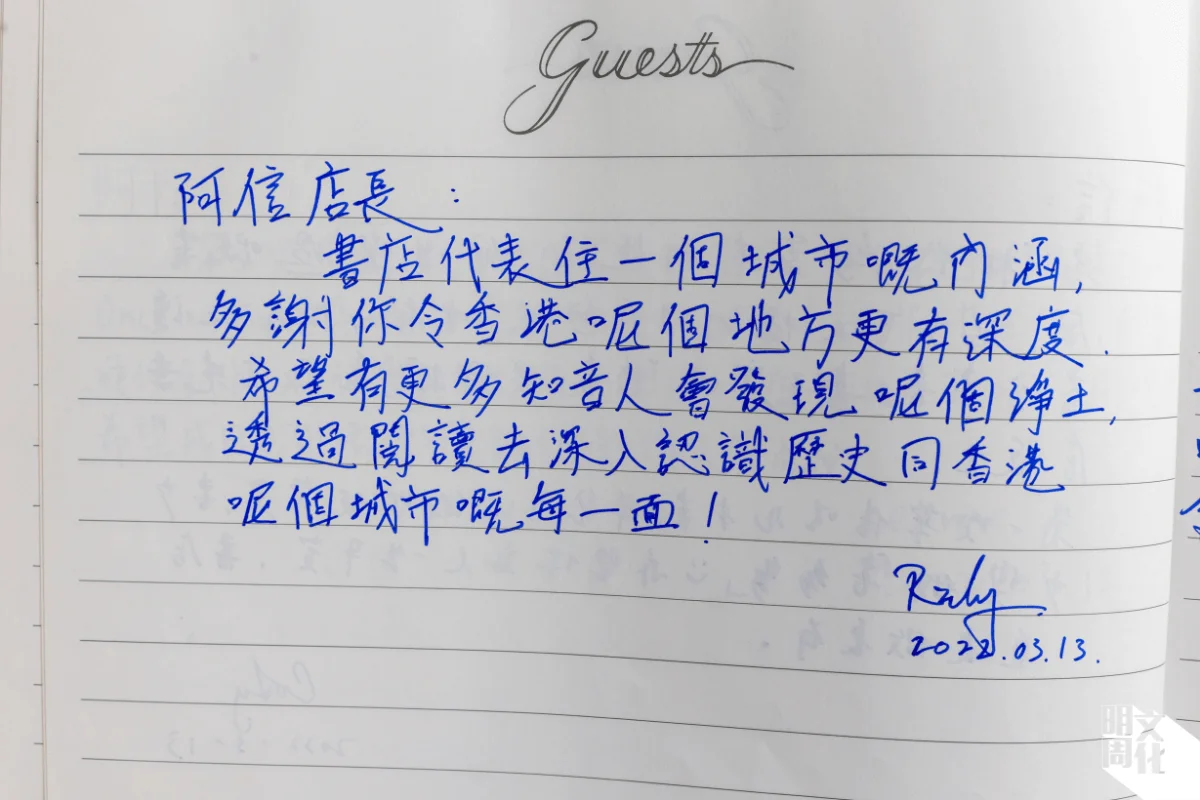 Guests
阿信店長：
書店代表住一個城市嘅內涵，
多謝你令香港呢個地方更有深度.
希望有更多知音人會發現呢個淨土，
透過閱讀去深入認識歷史同香港
呢個城市嘅每一面！
2022.03.13.
明周文化